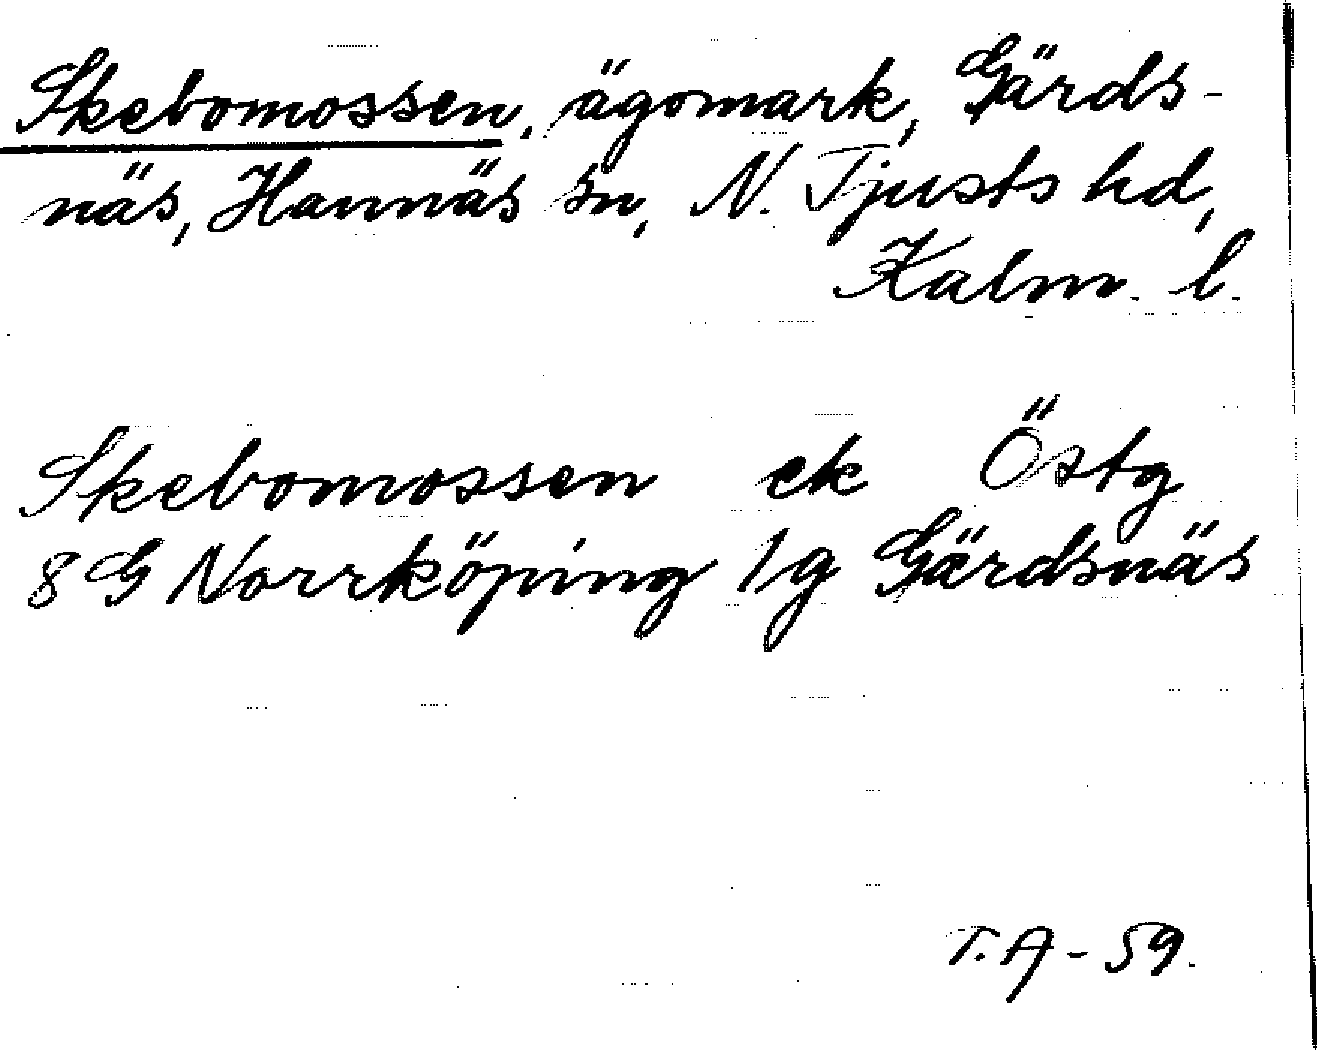 Skebomossen, ägomark, Gärds-
näs, Hannäs sn, N. Tjusts hd,
Kalm. l.
Skebomossen ek Östg
8 G Norrköping 1g Gärdsnäs
T.A - 59.